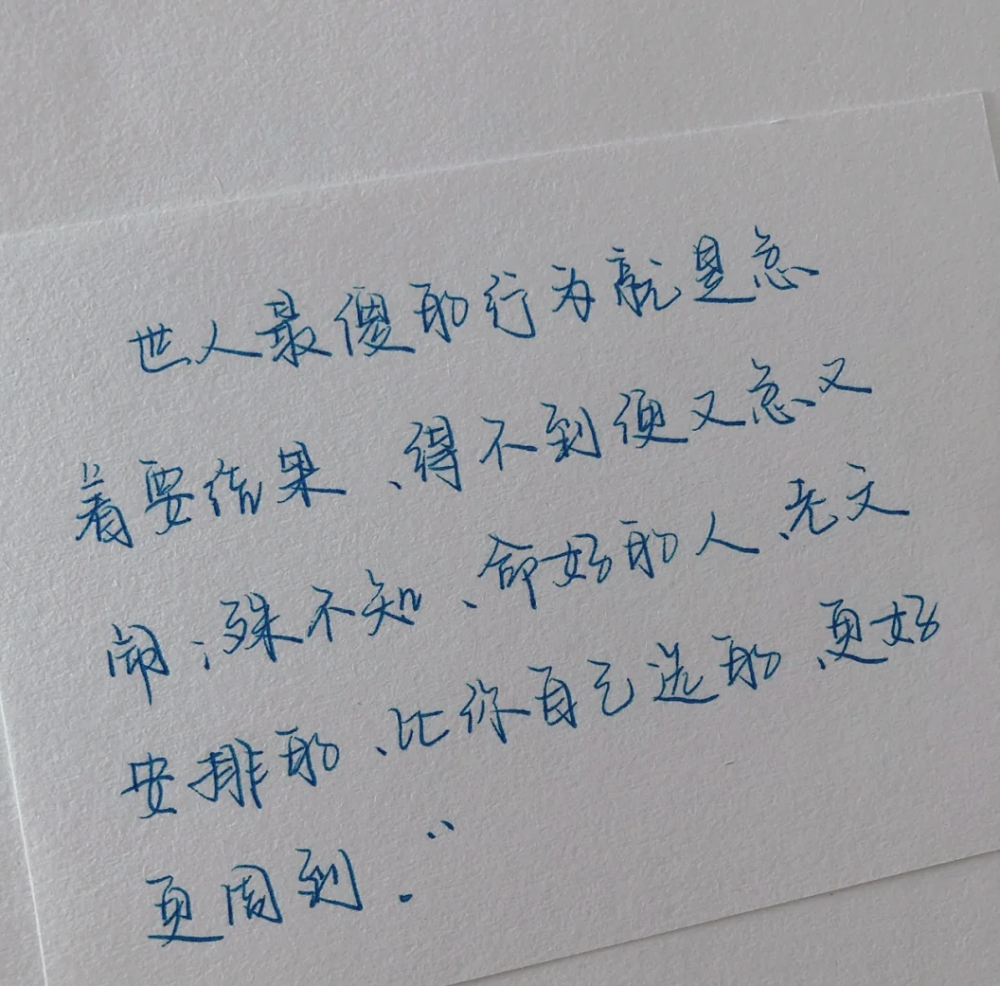 世人最傻的行为就是急
着要结果、得不到便又急又
闹；殊不知、命好的人、老天
安排的、比你自己选的、更好
更周到．”